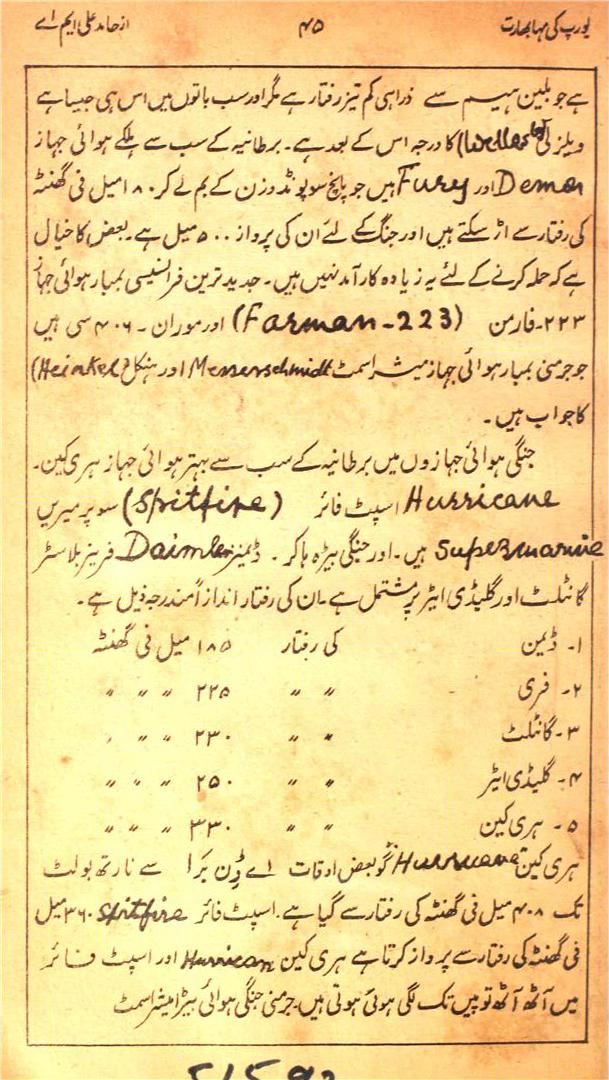 یورپ کی مہابھارت ۴۵ از حامد علی ایم اے
ہے جو بلین ہیم سے ذرا ہی کم تیز رفتار ہے مگر اور سب باتوں میں اس ہی جیسا ہے
ویلزلی (Wellesley) کا درجہ اس کے بعد ہے۔ برطانیہ کے سب سے ہلکے ہوائی جہاز
Demon اور Fury ہیں جو پانچ سو پونڈ وزن کے بم لے کر ۱۸۰ میل فی گھنٹہ
کی رفتار سے اڑ سکتے ہیں اور جنگ کے لئے ان کی پرواز ۵۰۰ میل ہے۔ بعض کا خیال
ہے کہ حملہ کرنے کے لئے یہ زیادہ کارآمد نہیں ہیں۔ جدید ترین فرانسیسی بمبار ہوائی جہاز
۲۲۳۔ فارمن (Farman-223) اور موران ۔ ۴۰۶ سی ہیں
جو جرمنی بمبار ہوائی جہاز میشر اسمٹ Messerschmidt اور ہنکل (Heinkel)
کا جواب ہیں۔
جنگی ہوائی جہازوں میں برطانیہ کے سب سے بہتر ہوائی جہاز ہری کین۔
Hurricane اسپٹ فائر (Spitfire) سوپر میرین
Supermarine ہیں۔ اور جنگی بیڑہ ہاکر ۔ ڈیمنر Daimler فریز بلاسٹر
گانٹلٹ اور گلیڈی ایٹر پر مشتمل ہے۔ ان کی رفتار اندازاً مندرجہ ذیل ہے۔
۱۔ ڈیمن کی رفتار ۱۸۵ میل فی گھنٹہ
۲۔ فری 〃 〃 ۲۲۵ 〃 〃 〃
۳۔ گانٹلٹ 〃 〃 ۲۳۰ 〃 〃 〃
۴۔ گلیڈی ایٹر 〃 〃 ۲۵۰ 〃 〃 〃
۵۔ ہری کین 〃 〃 ۳۳۰ 〃 〃 〃
ہری کین Hurricane گو بعض اوقات اے ڈِن بَرا سے نارتھ بولٹ
تک ۴۰۸ میل فی گھنٹہ کی رفتار سے گیا ہے۔ اسپٹ فائر Spitfire ۳۶۰ میل
فی گھنٹہ کی رفتار سے پرواز کرتا ہے ہری کین Hurrican اور اسپٹ فائر
میں آٹھ آٹھ توپیں تک لگی ہوئی ہوتی ہیں۔ جرمنی جنگی ہوائی بیڑا میشر اسمٹ